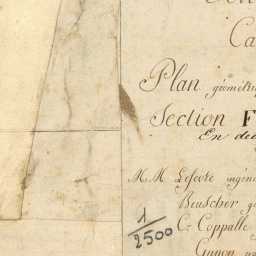 Ca
Plan géométri
Section F
En deu
M.M Lefevre ingén
Beuscher gé
C. Coppalle
Guyon
1/2500